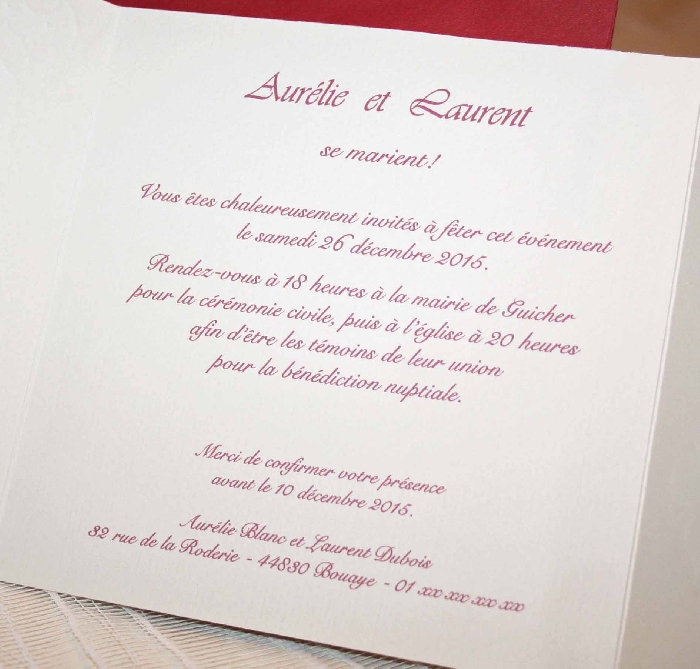 Aurélie et Laurent
se marient!
Vous êtes chaleureusement invités à fêter cet événement
le samedi 26 décembre 2015.
Rendez-vous à 18 heures à la mairie de Guicher
pour la cérémonie civile, puis à l'église à 20 heures
afin d'être les témoins de leur union
pour la bénédiction nuptiale.
Merci de confirmer votre présence
avant le 10 décembre 2015.
Aurélie Blanc et Laurent Dubois
32 rue de la Roderie - 44830 Bouaye - 01 xxx xxx xxx xxx